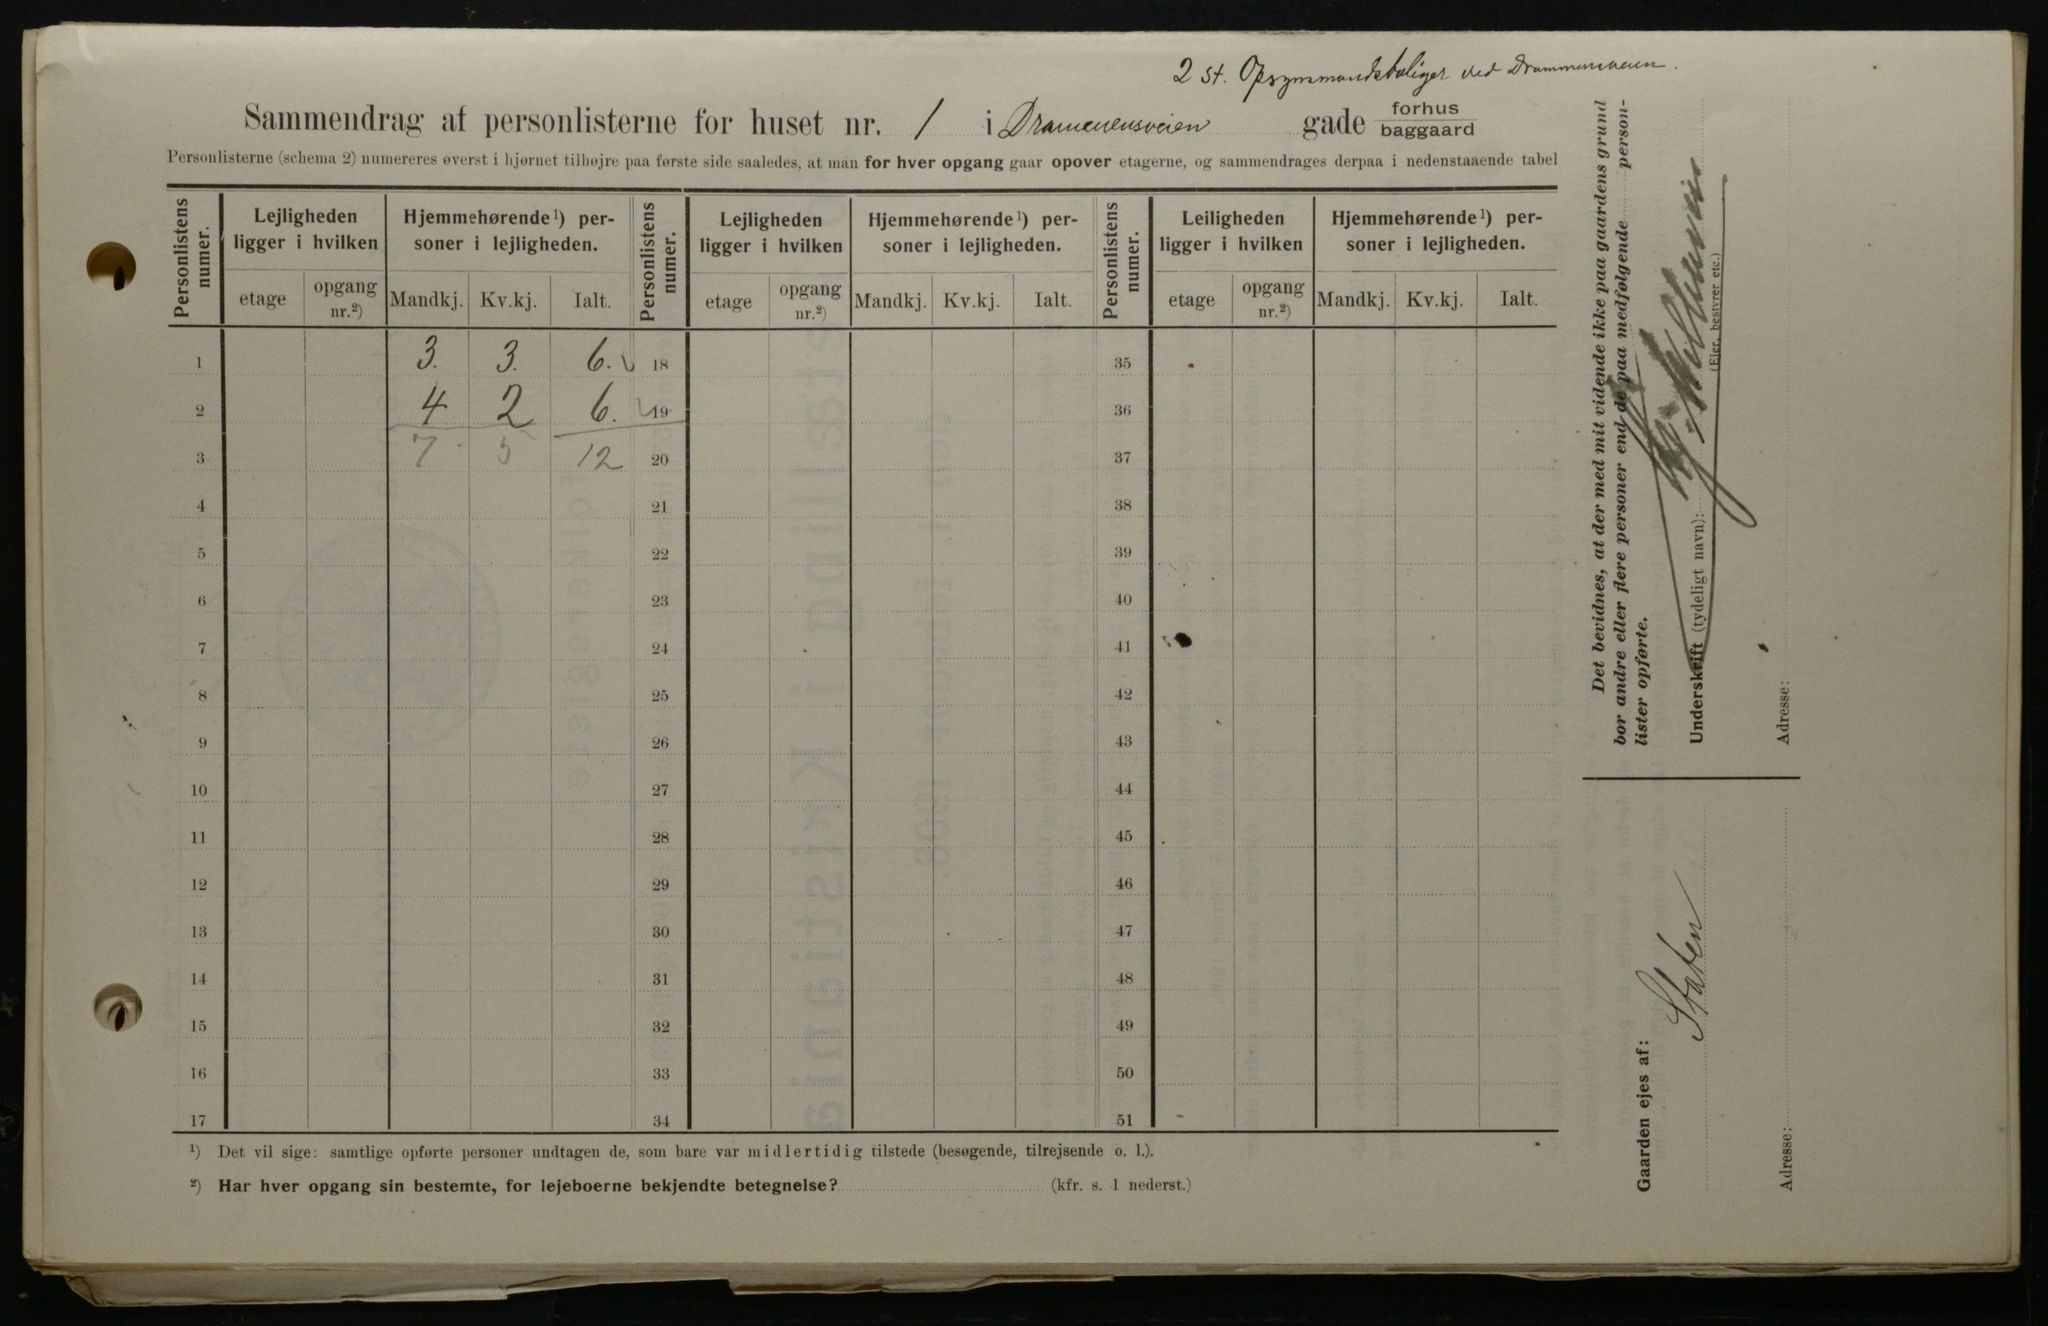 2 st. Opsynsmandsboliger ved Drammensveien.
Sammendrag af personlisterne for huset nr. 1 i Drammensveien gade forhus baggaard
Personlisterne (schema 2) numereres øverst i hjørnet tilhøjre paa første side saaledes, at man for hver opgang gaar opover etagerne, og sammendrages derpaa i nedenstaaende tabel
Personlistens numer. Lejligheden ligger i hvilken Hjemmehørende ¹) personer i lejligheden. Personlistens numer. Lejligheden ligger i hvilken Hjemmehørende ¹) personer i lejligheden. Personlistens numer. Leiligheden ligger i hvilken Hjemmehørende ¹) personer i lejligheden.
etage opgang nr.²) Mandkj. Kv.kj. Ialt. etage opgang nr.²) Mandkj. Kv.kj. Ialt. etage opgang nr.²) Mandkj. Kv.kj. Ialt.
1 3. 3. 6. 18 35
2 4 2 6. 19 36
3 7 5 12 20 37
4 21 38
5 22 39
6 23 40
7 24 41
8 25 42
9 26 43
10 27 44
11 28 45
12 29 46
13 30 47
14 31 48
15 32 49
16 33 50
17 34 51
¹) Det vil sige: samtlige opførte personer undtagen de, som bare var midlertidig tilstede (besøgende, tilrejsende o. l.).
²) Har hver opgang sin bestemte, for lejeboerne bekjendte betegnelse? (kfr. s. 1 nederst.)
Det bevidnes, at der med mit vidende ikke paa gaardens grund
bor andre eller flere personer end de paa medfølgende personlister opførte.
Underskrift (tydeligt navn):
(Eier, bestyrer etc.)
Adresse:
Gaarden ejes af: Staten
Adresse: